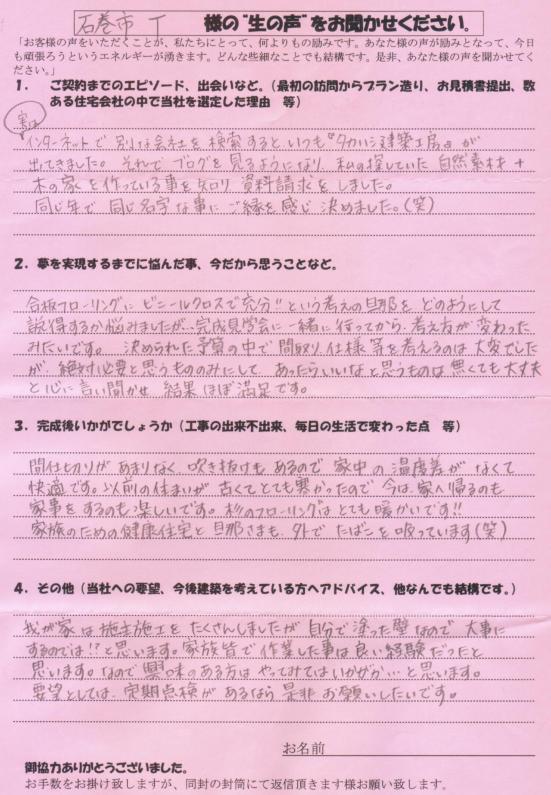 石巻市 T 様の"生の声"をお聞かせください。
「お客様の声をいただくことが、私たちにとって、何よりもの励みです。あなた様の声が励みとなって、今日
も頑張ろうというエネルギーが湧きます。どんな些細なことでも結構です。是非、あなた様の声を聞かせてく
ださい。」
1． ご契約までのエピソード、出会いなど。（最初の訪問からプラン造り、お見積書提出、数
ある住宅会社の中で当社を選定した理由　等）
実は
インターネットで 別な会社を 検索すると、いつも『タカハシ建築工房』が
出てきました。 それで ブログを 見るようになり、私の探していた 自然素材 +
木の家 を作っている事を 知り 資料請求を しました。
同じ年で 同じ名字 な事に ご縁を感じ 決めました。(笑)
2．夢を実現するまでに悩んだ事、今だから思うことなど。
合板フローリングに ビニールクロスで充分!! という考えの旦那を どのようにして
説得するか悩みましたが、完成見学会に 一緒に行ってから 考え方が 変わった
みたいです。 決められた予算の中で 間取り、仕様 等を考えるのは 大変でした
が、絶対必要と思うもののみにして、あったらいいなと思うものは 無くても大丈夫
と心に言い聞かせ 結果ほぼ満足です。
3．完成後いかがでしょうか（工事の出来不出来、毎日の生活で変わった点　等）
間仕切りが あまりなく 吹き抜けも あるので 家中の 温度差が なくて
快適です。以前の住まいが 古くてとても寒かったので 今は 家へ帰るのも
家事をするのも楽しいです。杉のフローリングは とても暖かいです!!
家族のための健康住宅と 旦那さまも 外で たばこを 吸っています(笑)
4．その他（当社への要望、今後建築を考えている方へアドバイス、他なんでも結構です。）
我が家は 施主施工を たくさんしましたが 自分で塗った壁なので 大事に
するのでは!?と思います。家族皆で作業した事は 良い経験だったと
思います。なので 興味のある方は やってみてはいかがか… と思います。
要望としては、定期点検が あるなら 是非 お願いしたいです。
お名前
御協力ありがとうございました。
お手数をお掛け致しますが、同封の封筒にて返信頂きます様お願い致します。